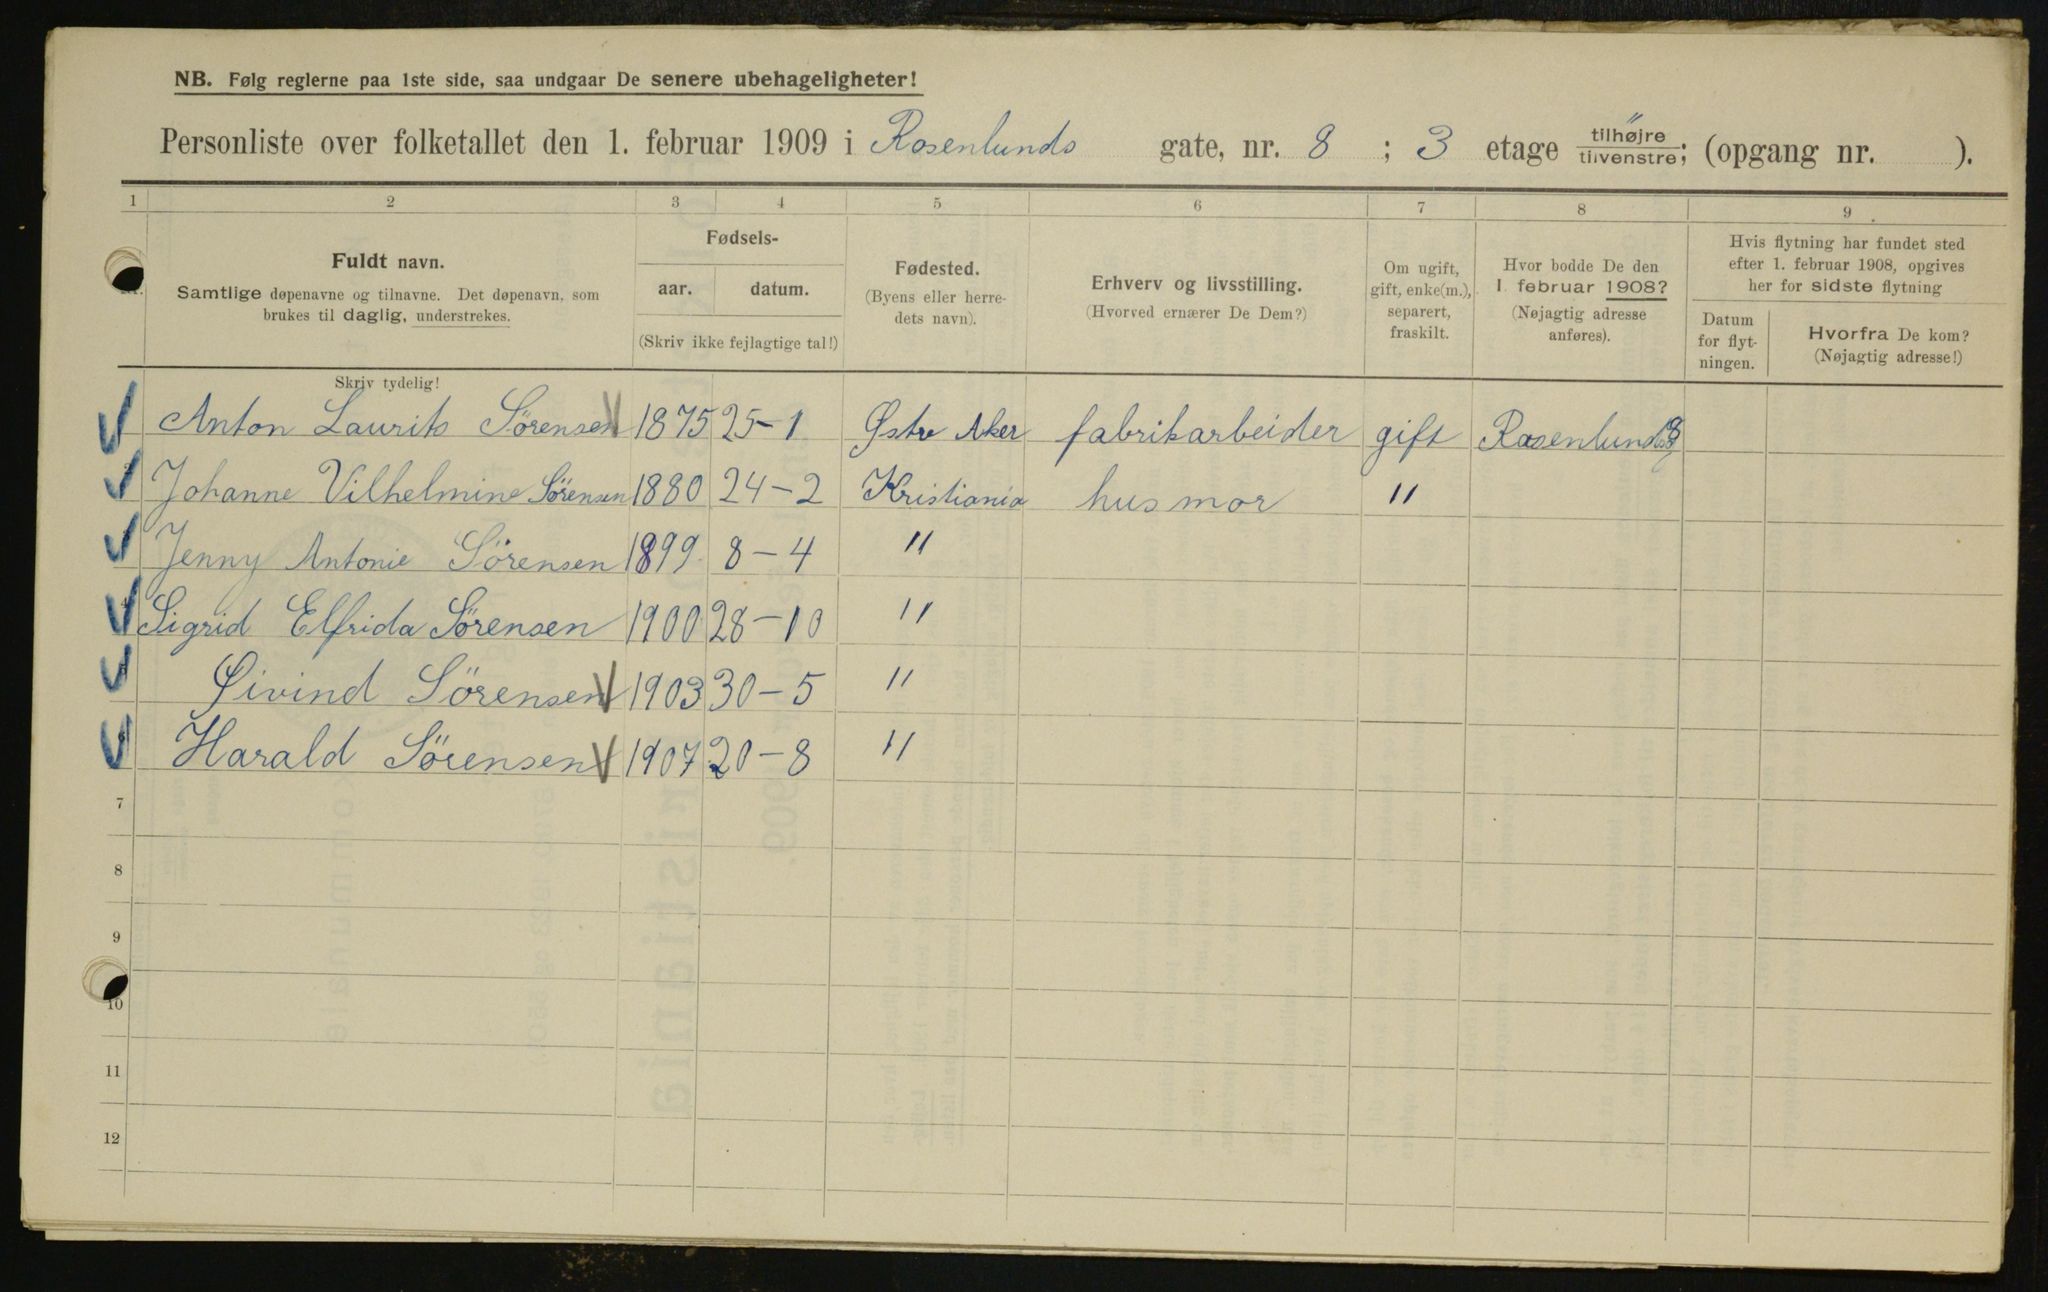 NB. Følg reglerne paa 1ste side, saa undgaar De senere ubehageligheter!
Personliste over folketallet den 1. februar 1909 i Rosenlunds gate, nr. 8 ; 3 etage tilhøjre tilvenstre; (opgang nr. ).
1 2 3 4 5 6 7 8 9
Fuldt navn.
Samtlige døpenavne og tilnavne. Det døpenavn, som
brukes til daglig, understrekes.
Skriv tydelig!
Fødsels-
aar. datum.
(Skriv ikke fejlagtige tal!)
Fødested.
(Byens eller herre-
dets navn).
Erhverv og livsstilling.
(Hvorved ernærer De Dem?)
Om ugift,
gift, enke(m.),
separert,
fraskilt.
Hvor bodde De den
1. februar 1908?
(Nøjagtig adresse
anføres).
Hvis flytning har fundet sted
efter 1. februar 1908, opgives
her for sidste flytning
Datum
for flyt-
ningen.
Hvorfra De kom?
(Nøjagtig adresse!)
Anton Laurits Sörensen 1875 25-1 Østre Aker fabrikarbeider gift Rosenlundsg 8
Johanne Vilhelmine Sörensen 1880 24-2 Kristiania husmor "
Jenny Antonie Sörensen 1899 8-4 "
Sigrid Elfrida Sörensen 1900 28-10 "
Øivind Sörensen 1903 30-5 "
Harald Sörensen 1907 20-8 "
7
8
9
10
11
12